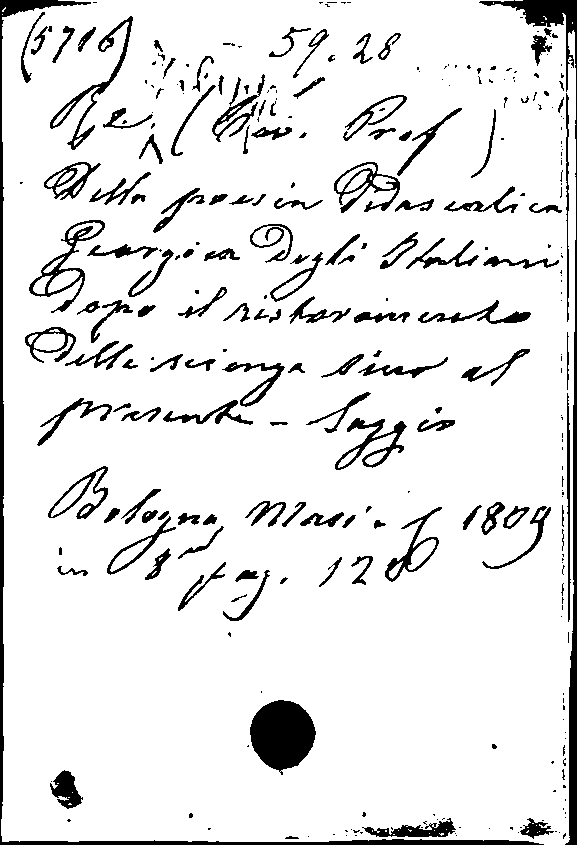 (5716) - 59.28
Re (Gio. Prof)
Della poesia Didascalica
Georgica Degli Italiani
Dopo il ristoramento
Delle scienze sino al
presente - Saggio
Bologna, Masi. f 1809
in 8° pag. 120